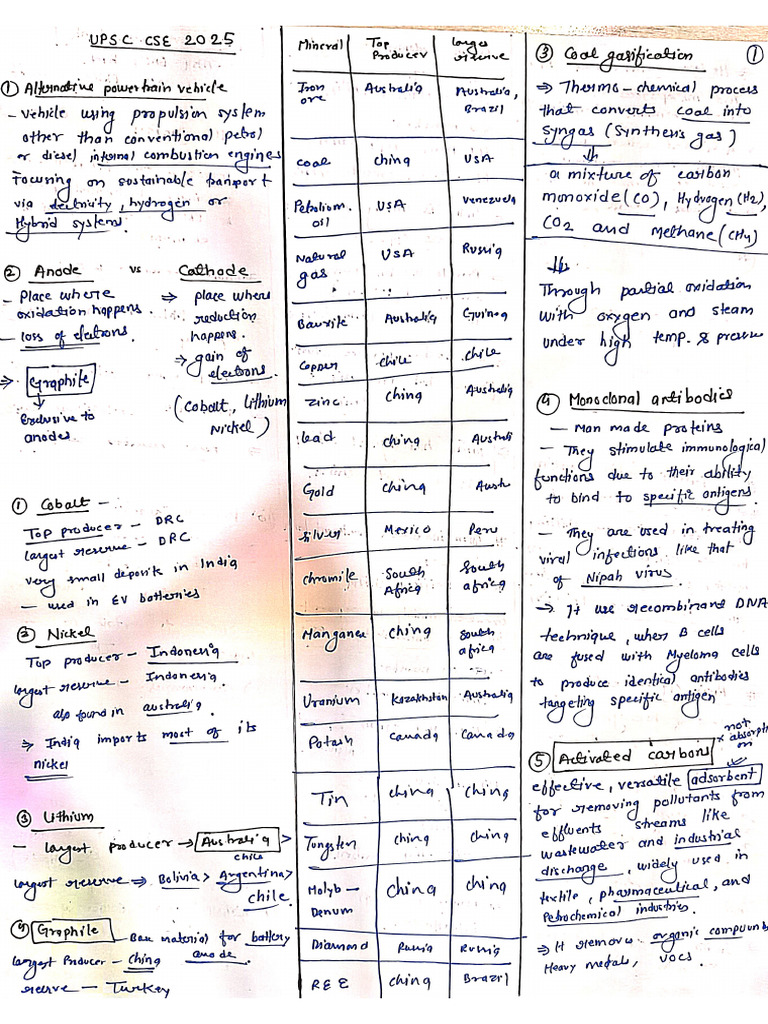 UPSC CSE 2025
① Alternative powertrain vehicle
- Vehicle using propulsion system
other than conventional petrol
or diesel internal combustion engines
Focusing on sustainable transport
via electricity, hydrogen or
Hybrid systems.
② Anode vs Cathode
- Place where oxidation happens. ⇒ place where reduction happens.
- loss of electrons. ⇒ gain of electrons.
⇒ Graphite
↓
Exclusive to
anodes
(Cobalt, Lithium
Nickel)
① Cobalt -
Top producer - DRC
largest reserve - DRC
very small deposits in India
- used in EV batteries
② Nickel
Top producer - Indonesia
largest reserve - Indonesia
also found in australia.
⇒ India imports most of its
nickel
③ Lithium
- largest producer → Australia >
chile
largest reserve ⇒ Bolivia > Argentina >
chile.
④ Graphite - Base material for battery
anode.
largest Producer - china
reserve - Turkey
Mineral | Top Producer | larges reserve
Iron ore | Australia | Australia, Brazil
coal | china | USA
Petroliom. oil | USA | Venezuela
Natural gas | USA | Russia
Bauxite | Australia | Guinea
Copper | chile | chile
Zinc | china | Australia
lead | china | Australi
Gold | china | Aust
Silver | Mexico | Peru
chromite | South Africa | South africa
Manganese | china | South africa
Uranium | Kazakhstan | Australia
Potash | canada | Canada
Tin | china | china
Tungsten | china | china
Molyb-Denum | china | china
Diamond | Russia | Russia
REE | china | Brazil
③ Coal gasification ①
⇒ Thermo-chemical process
that converts coal into
syngas (Synthesis gas)
⇓
a mixture of carbon
monoxide (CO), Hydrogen (H2),
CO2 and methane (CH4)
⇓
Through partial oxidation
with oxygen and steam
under high temp. & pressure
④ Monoclonal antibodies
- Man made proteins
- They stimulate immunological
functions due to their ability
to bind to specific antigens.
- They are used in treating
viral infections like that
of Nipah virus.
→ It use recombinant DNA
technique, when B cells
are fused with Myeloma cells
to produce identical antibodies
targeting specific antigen
⑤ Activated carbons × not absorption
effective, versatile adsorbent
for removing pollutants from
effluents streams like
wastewater and industrial
discharge, widely used in
textile, pharmaceutical, and
Petrochemical industries.
⇒ It remove organic compounds
Heavy metals, VOCs.